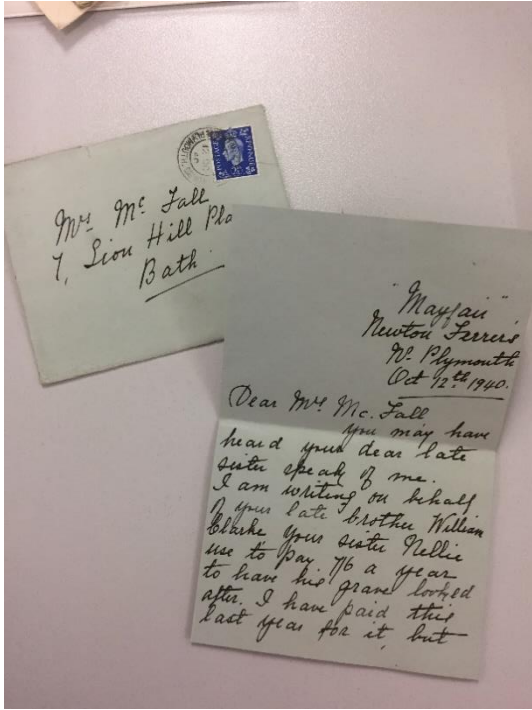 Mrs Mc Fall
7, Lion Hill Pla
Bath.
POSTAGE
"Mayfair"
Newton Ferrers
Nr. Plymouth
Oct 12th 1940.
Dear Mrs Mc. Fall
you may have
heard your dear late
sister speak of me.
I am writing on behalf
of your late brother William
Clarke your sister Nellie
use to pay 7/6 a year
to have his grave looked
after. I have paid this
last year for it, but